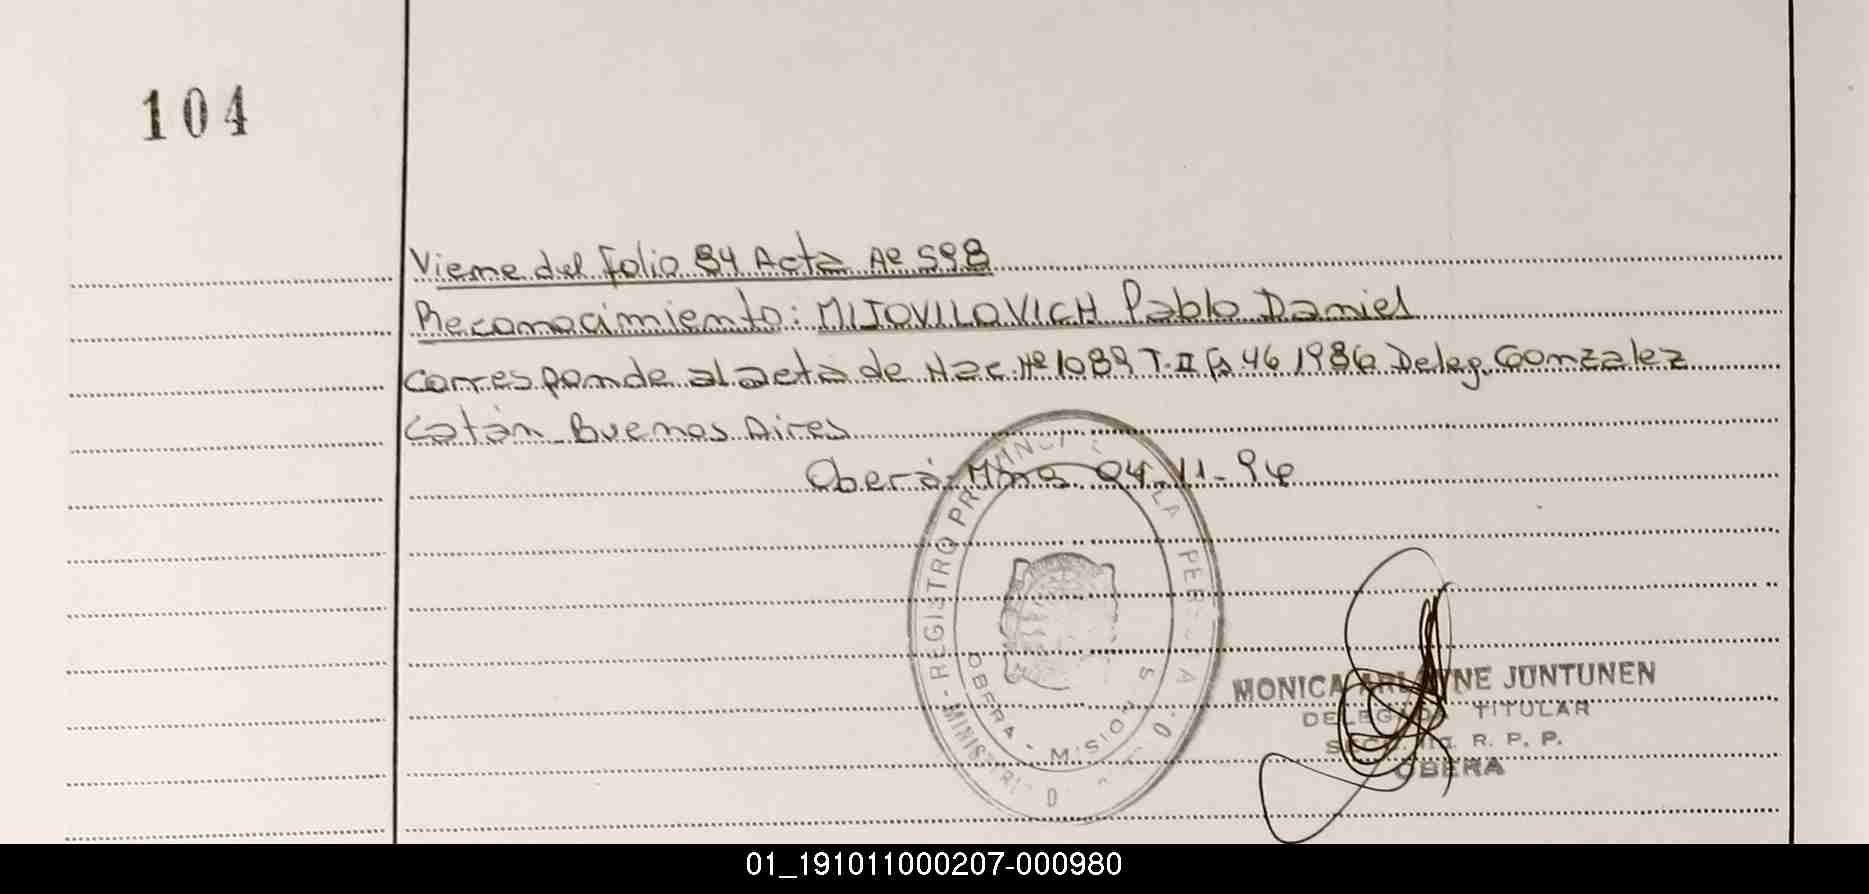 104
Viene del folio 84 Acta Nº 598
Reconocimiento: MIJOVILOVICH Pablo Daniel
Corresponde al acta de Nac. Nº 1089 T. II fs 46 1986 Deleg. Gonzalez
Catán Buenos Aires
Oberá Mnes 04-11-96
REGISTRO PROVINCI LA PE
OBERA - MISIONES
MONICA ARLAYNE JUNTUNEN
DELEGADA TITULAR
R. P. P.
OBERA
01_191011000207-000980